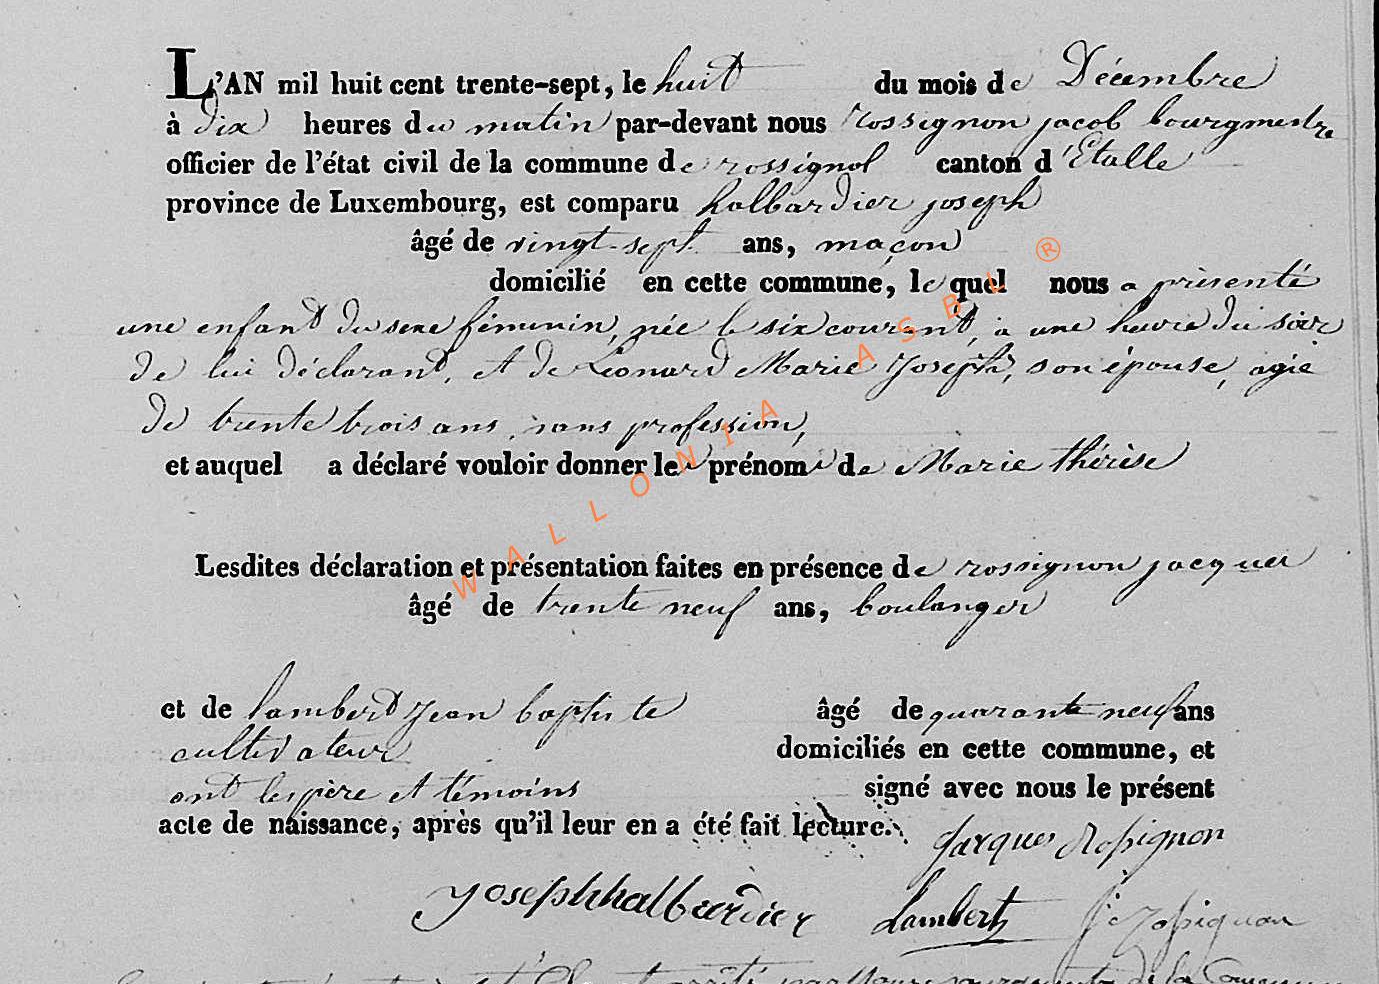 L'AN mil huit cent trente-sept, le huit du mois de Décembre
à dix heures du matin par-devant nous rossignon jacob bourgmestre
officier de l'état civil de la commune de rossignol canton d'Etalle
province de Luxembourg, est comparu halbardier joseph
âgé de vingt-sept ans, maçon
domicilié en cette commune, lequel nous a présenté
une enfant du sexe féminin, née le six courant, à une heure du soir
de lui déclarant, et de Léonard Marie Joseph, son épouse, agée
de trente trois ans, sans profession,
et auquel a déclaré vouloir donner les prénoms de Marie thérèse
Lesdites déclaration et présentation faites en présence de rossignon jacques
âgé de trente neuf ans, boulanger
et de lambert jean baptiste âgé de quarante neuf ans
cultivateur domiciliés en cette commune, et
ont les père et témoins signé avec nous le présent
acte de naissance, après qu'il leur en a été fait lecture.
Jacques Rossignon
Joseph halbardier Lambert J Rossignon
WALLONIA ASBL ®